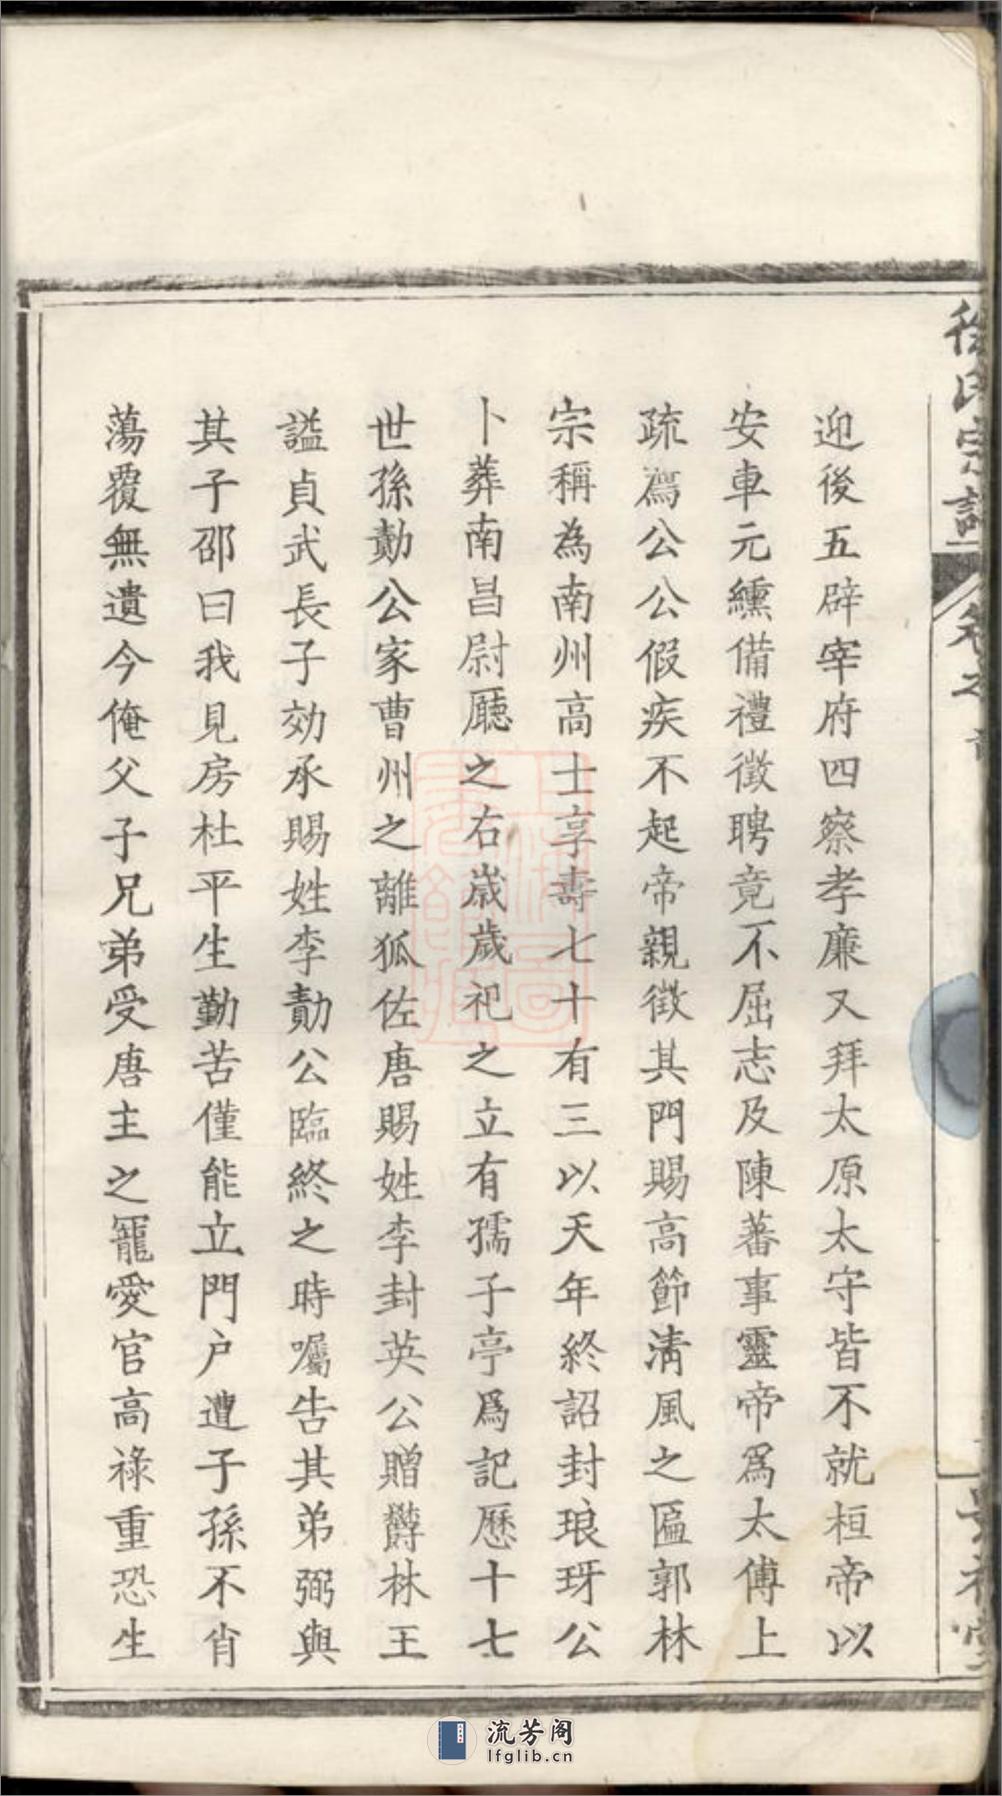 迎後五辟宰府四察孝廉又拜太原太守皆不就桓帝以
安車元纁備禮徵聘竟不屈志及陳蕃事靈帝爲太傅上
疏薦公公假疾不起帝親徵其門賜高節淸風之匾郭林
宗稱為南州高士享壽七十有三以天年終詔封琅玡公
卜葬南昌尉廳之右歲歲祀之立有孺子亭爲記歷十七
世孫勣公家曹州之離狐佐唐賜姓李封英公贈欝林王
謚貞武長子効承賜姓李勣公臨終之時囑告其弟弼與
其子邵曰我見房杜平生勤苦僅能立門户遭子孫不肖
蕩覆無遺今俺父子兄弟受唐主之寵愛官高祿重恐生
徐氏宗譜
卷之首
流芳阁
lfglib.cn